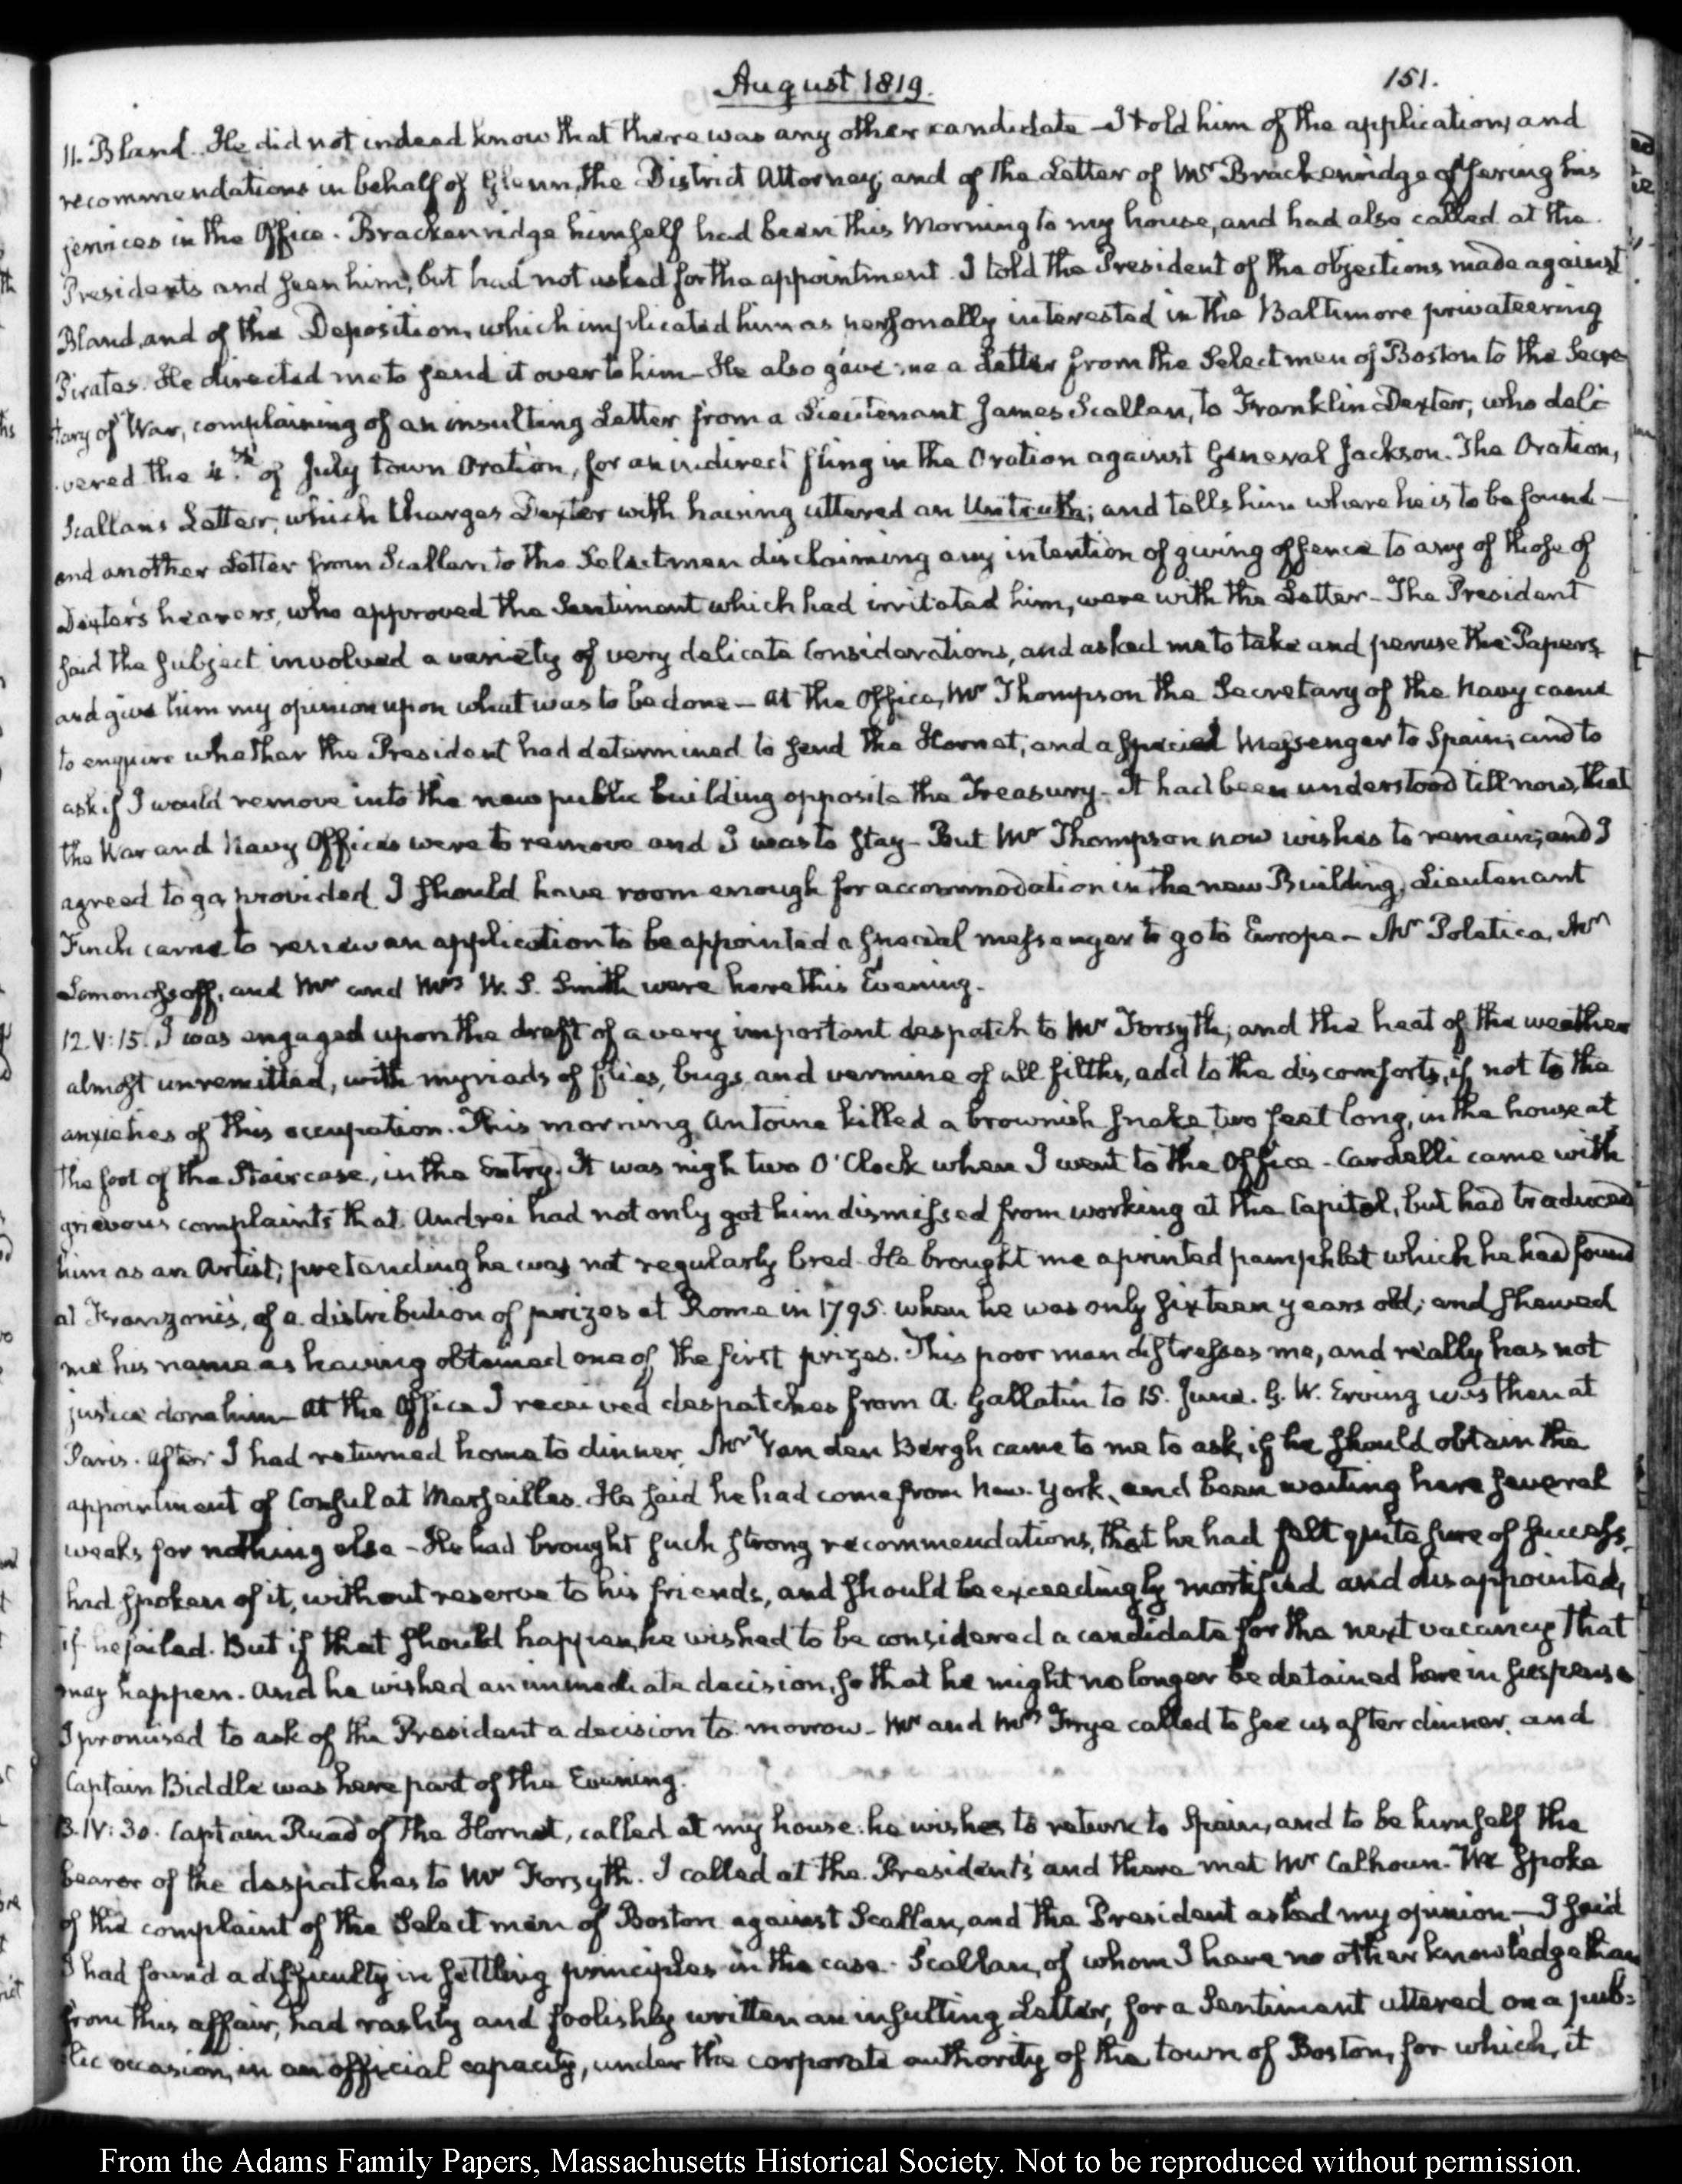 August 1819.
151.
11. Bland. He did not indeed know that there was any other candidate — I told him of the application, and
recommendations in behalf of Glenn, the District Attorney; and of the Letter of Mr Brackenridge offering his
services in the Office. Brackenridge himself had been this Morning to my house, and had also called at the
Presidents and seen him, but had not asked for the appointment. I told the President of the objections made against
Bland, and of the Deposition, which implicated him as personally interested in the Baltimore privateering
Pirates. He directed me to send it over to him — He also gave me a Letter from the Selectmen of Boston to the Secre
tary of War, complaining of an insulting Letter from a Lieutenant James Scallan, to Franklin Dexter, who deli
vered the 4th of July town Oration, for an indirect fling in the Oration against General Jackson. The Oration,
Scallan's Letter, which charges Dexter with having uttered an Untruth; and tells him where he is to be found —
and another Letter from Scallan to the Selectmen disclaiming any intention of giving offence to any of those of
Dexter's hearers, who approved the Sentiment which had irritated him, were with the Letter — The President
said the subject involved a variety of very delicate Considerations, and asked me to take and peruse the Papers,
and give him my opinion upon what was to be done — At the Office, Mr Thompson the Secretary of the Navy came
to enquire whether the President had determined to send the Hornet, and a special Messenger to Spain; and to
ask if I would remove into the new public building opposite the Treasury — It had been understood till now, that
the War and Navy Offices were to remove and I was to stay — But Mr Thompson now wishes to remain; and I
agreed to go, provided I should have room enough for accommodation in the new Building. Lieutenant
Finch came to renew an application to be appointed a special messenger to go to Europe — Mr Poletica, Mr
Lomonossoff, and Mr and Mrs W. S. Smith were here this Evening.
12. V:15. I was engaged upon the draft of a very important despatch to Mr Forsyth; and the heat of the weather
almost unremitted, with myriads of flies, bugs and vermine of all filths, add to the discomforts, if not to the
anxieties of this occupation. This morning Antoine killed a brownish snake two feet long, in the house at
the foot of the Staircase, in the Entry. It was nigh two O'Clock when I went to the Office — Cardelli came with
grievous complaints that Andrei had not only got him dismissed from working at the Capitol, but had traduced
him as an Artist; pretending he was not regularly bred — He brought me a printed pamphlet which he had found
at Franzoni's, of a distribution of prizes at Rome in 1795. when he was only sixteen years old; and shewed
me his name as having obtained one of the first prizes. This poor man distresses me, and really has not
justice done him — At the Office I received despatches from A. Gallatin to 15. June. G. W. Erving was then at
Paris. After I had returned home to dinner, Mr Van den Bergh came to me to ask, if he should obtain the
appointment of Consul at Marseilles. He said he had come from New-York, and been waiting here several
weeks for nothing else — He had brought such strong recommendations, that he had felt quite sure of success,
had spoken of it, without reserve to his friends, and should be exceedingly mortified and disappointed,
if he failed. But if that should happen, he wished to be considered a candidate for the next vacancy that
may happen. And he wished an immediate decision, so that he might no longer be detained here in suspense
I promised to ask of the President a decision to morrow — Mr and Mrs Frye called to see us after dinner, and
Captain Biddle was here part of the Evening.
13. IV:30. Captain Read of the Hornet, called at my house: he wishes to return to Spain, and to be himself the
bearer of the despatches to Mr Forsyth. I called at the President's and there met Mr Calhoun. We spoke
of the complaint of the Select men of Boston against Scallan, and the President asked my opinion — I said
I had found a difficulty in settling principles in the case. Scallan, of whom I have no other knowledge than
from this affair, had rashly and foolishly written an insulting Letter, for a Sentiment uttered on a pub=
lic occasion, in an official capacity, under the corporate authority of the town of Boston, for which, it
From the Adams Family Papers, Massachusetts Historical Society. Not to be reproduced without permission.